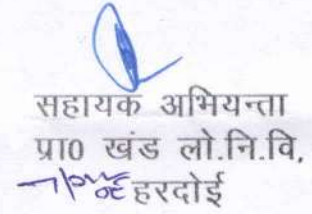 सहायक अभियन्ता
प्रा0 खंड लो.नि.वि,
हरदोई